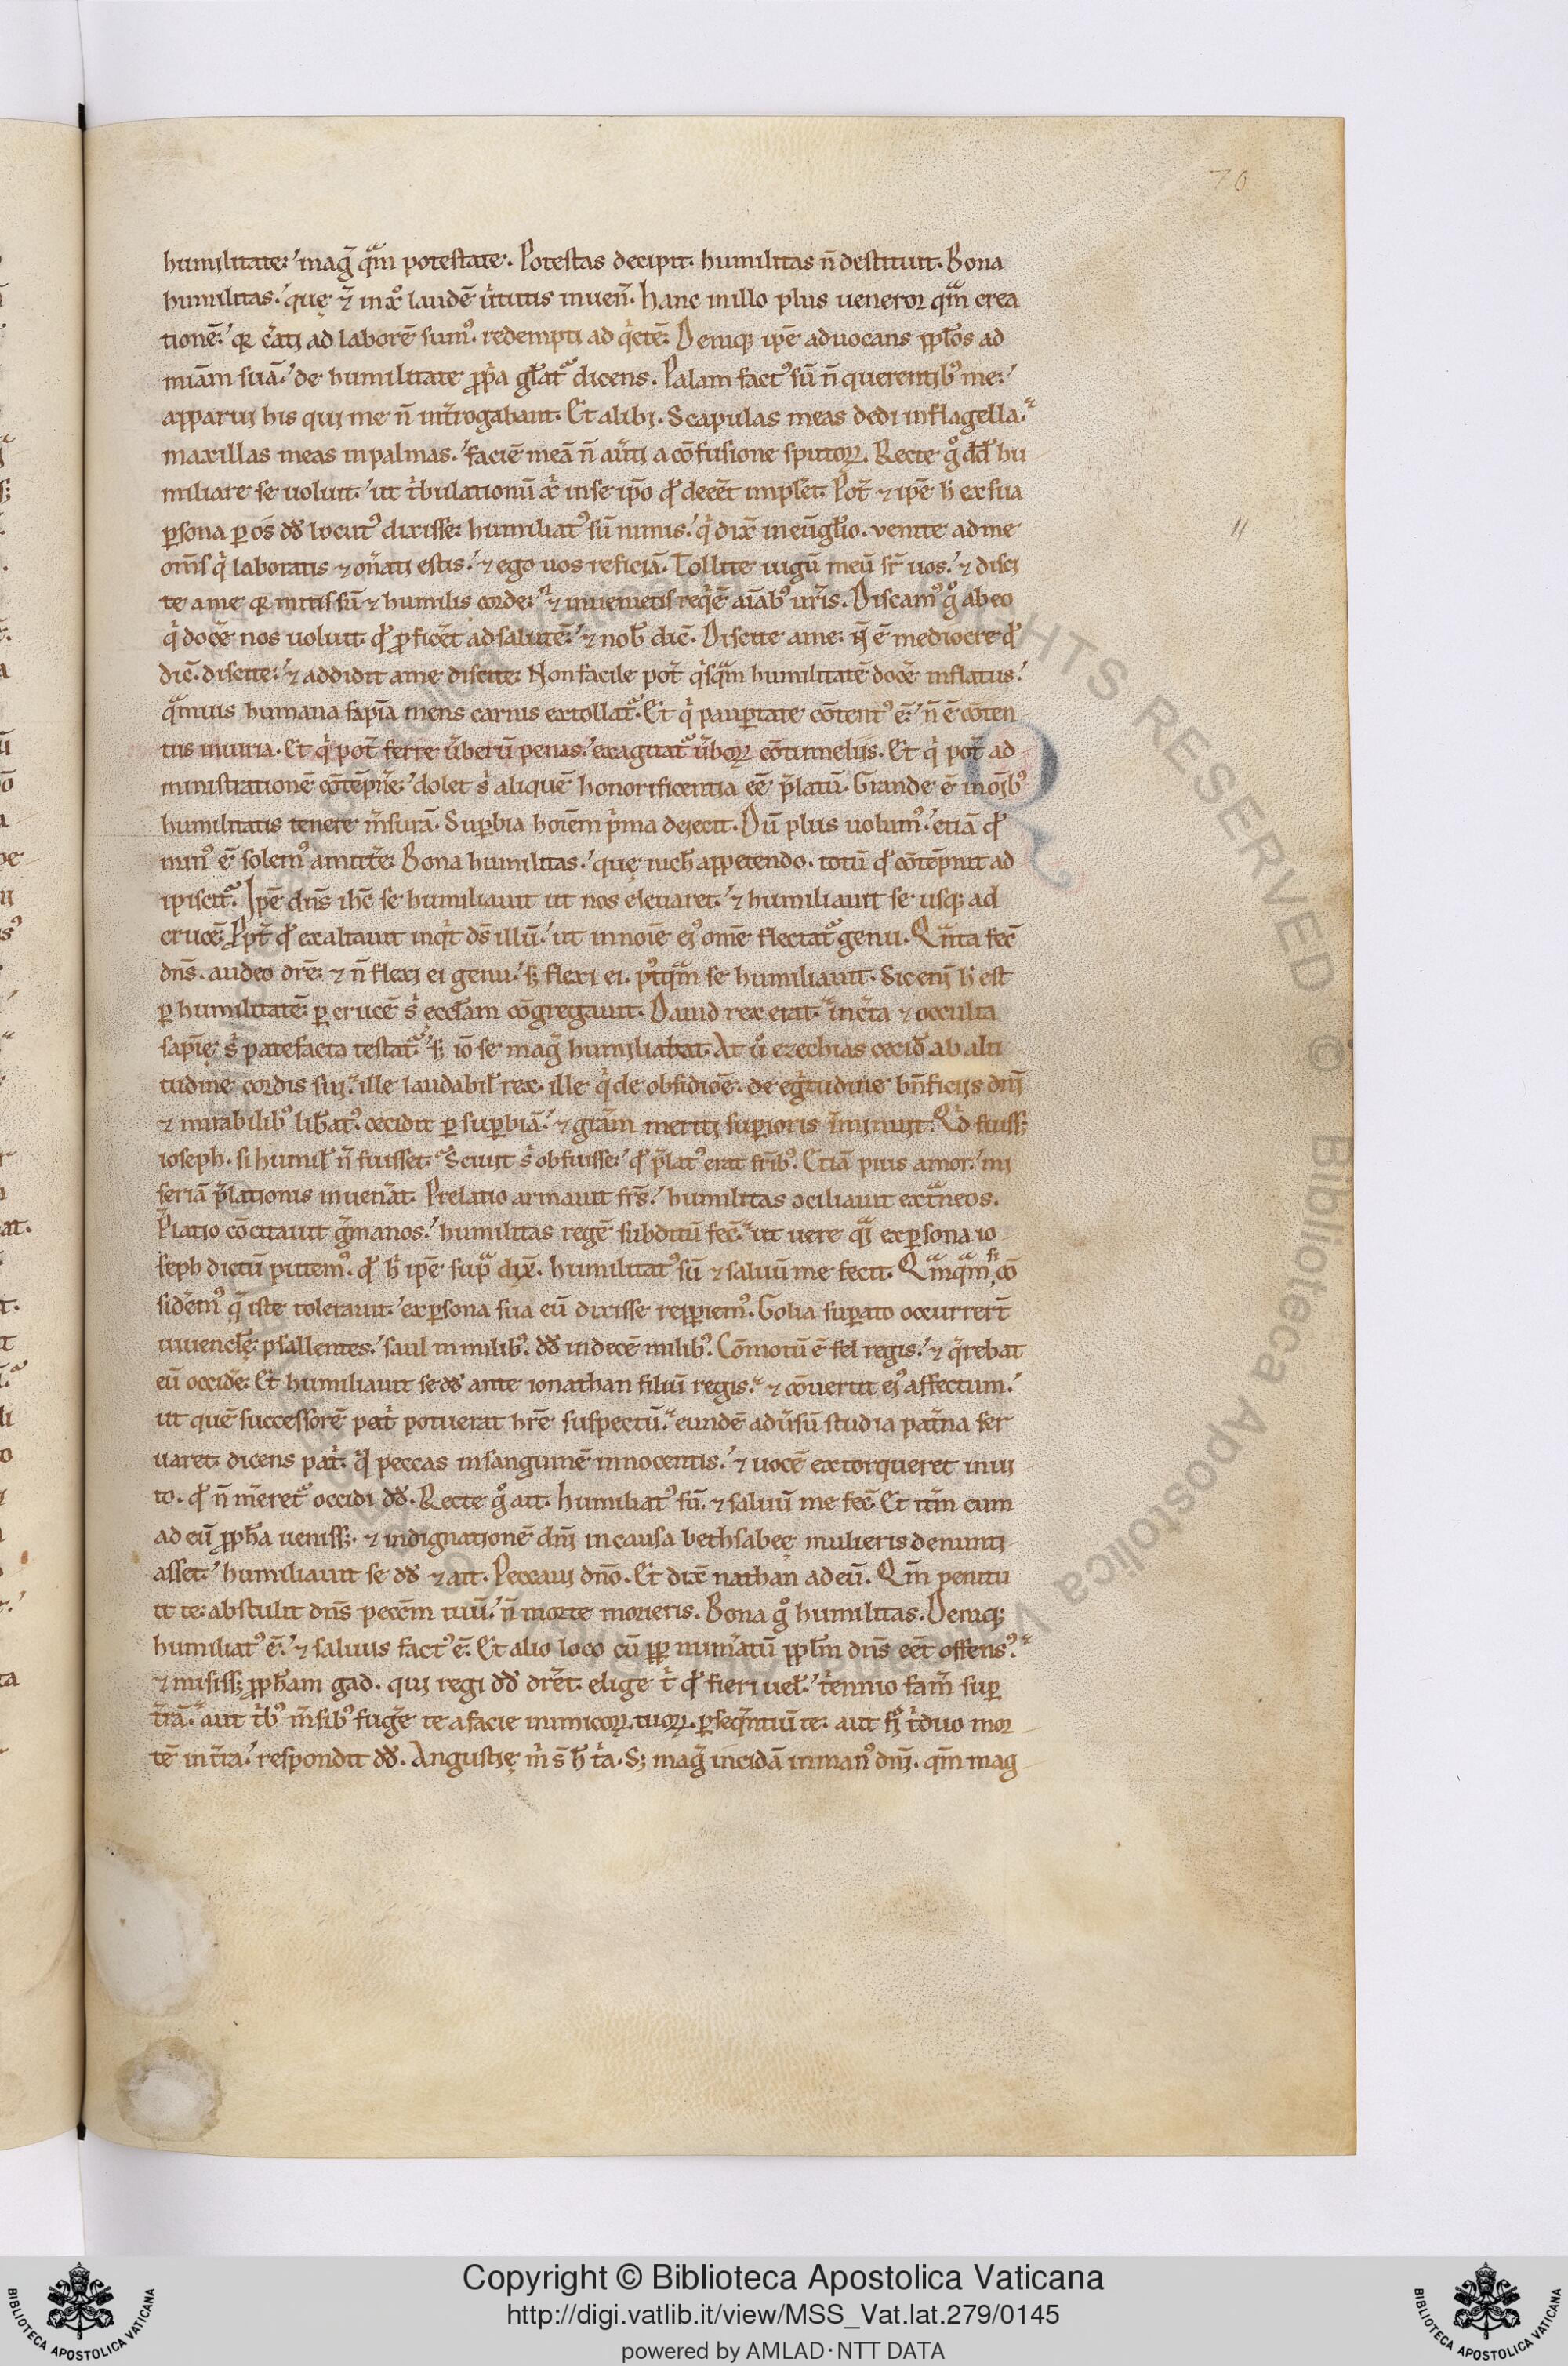 70
humilitate: mag̃ qͣm potestate. Potestas decipit. humilitas ñ destituit. Bona
humilitas. quę ⁊̃ in xp̄o laudē u̓tutis inuen̄. Hanc in illo plus ueneror qͣm crea
tionē. qꝛ c̓ati ad laborē sumꝰ. redempti ad qͥetē. Deniqꝫ ip̄e aduocans pp̄los ad
miām suā. de humilitate p̱pͥa gl̄atᷣ dicens. Palam factꝰ sū ñ querentibꝰ me.
apparui his qui me ñ int̓rogabant. Et alibi. Scapulas meas dedi in flagella.
maxillas meas in palmas. faciē meā ñ au̓ti a cōfusione sputoꝝ. Recte gͦ dd̄ hu
miliare se uoluit. ut tͥbulationū xp̄i in se ip̄o qd̄ decēt implēt. Pot̄ ⁊ ip̄e h̄ ex sua
ꝑsona ꝑ os dd̄ locutꝰ dixisse. humiliatꝰ sū nimis. qͥ dix̄ in eūgl̄io. venite ad me
om̄s qͥ laboratis ⁊ on̓ati estis. ⁊ ego uos reficiā. Tollite iugū meū sr̄ uos. ⁊ disci
te a me qꝛ mitis sū ⁊ humilis corde. ⁊ inuenietis reqͥē aīabꝰ ur̄is. Discamꝰ gͦ ab eo
qͥ docē nos uoluit. qd̄ ꝓficēt ad salutē. ⁊ nob̄ dic̄. Discite a me. ñ ē mediocre qd̄
dic̄. discite. ⁊ addidit a me discite. Non facile pot̄ qͥsqͣm humilitatē docē inflatus.
qͣmuis humana sapīa mens carnis extollatᷣ. Et qͥ pauꝑtate cōtentꝰ ē. ñ ē cōten
tus iniuria. Et qͥ pot̄ ferre u̓berū penas. exagitatᷣ u̓boꝝ cōtumeliis. Et qͥ pot̄ ad
ministrationē cōtēpn̄e. dolet sͥ aliquē honorificentia eē p̄latū. Grande ē in oībꝰ
humilitatis tenere m̄surā. Suꝑbia hoīem pͥma deiecit. Dū plus uolumꝰ. etiā qd̄
minꝰ ē solemꝰ amitt̓e. Bona humilitas. quę nich̄ appetendo. totū qd̄ cōtēpnit ad
ipiscitᷣ. Ip̄e dn̄s ih̄c se humiliauit ut nos eleuaret. ⁊ humiliauit se usqꝫ ad
crucē. Ppt̄ qd̄ exaltauit inqͥt ds̄ illū. ut in noīe eiꝰ om̄e flectatᷣ genu. Qͣnta fec̄
dn̄s. audeo dr̄e. ⁊ ñ flexi ei genu. sꝫ flexi ei. pꝰtqͣm se humiliauit. Sic enī h̄ est
ꝑ humilitatē. ꝑ crucē sͥ eccl̄am cōgregauit. Dauid rex erat. inc̓ta ⁊ occulta
sapīę sͥ patefacta testatᷣ. sꝫ iō se mag̃ humiliabat. At uͦ ezechias cecid̄ ab alti
tudine cordis sui. ille laudabil̄ rex. ille qͥ de obsidiōe. de eg̓tudine bn̄ficiis dn̄i
⁊ mirabilibꝰ lib̄atꝰ. cecidit ꝑ suꝑbiā. ⁊ grām meriti suꝑioris īminuit. Qͥd fuissꝫ
ioseph. si humil̄ ñ fuisset. Sciuit sͥ obfuisse. qd̄ p̄latꝰ erat fr̄ibꝰ. Etiā pius amor. mi
seriā p̄lationis inuen̓at. Prelatio armauit fr̄s. humilitas ɔciliauit ext̓neos.
P̄latio cōcitauit g̓manos. humilitas regē subditū fec̄. ut uere qͣi ex ꝑsona io
seph dictū putemꝰ. qd̄ h̄ ip̄e supͣ dix̄. humilitatꝰ sū ⁊ saluū me fecit. Qͣmqͣm si cō
sid̓emꝰ q̄ iste tolerauit. ex ꝑsona sua eū dixisse reꝑꝑiemꝰ. Golia suꝑato occurrert̄
iuuencl̄ę. psallentes. saul in milibꝰ. dd̄ in decē milibꝰ. Cōmotū ē fel regis. ⁊ q̄rebat
eū occid̓e. Et humiliauit se dd̄ ante ionathan filiū regis. ⁊ cōuertit eiꝰ affectum.
ut quē successorē pat̓ potuerat hr̄e suspectū. eundē adu̓sū studia pat̓na ser
uaret. dicens pat̓. qͥd peccas in sanguinē innocentis. ⁊ uocē extorqueret inui
to. qd̄ ñ m̓eretᷣ occidi dd̄. Recte gͦ ait. Humiliatꝰ sū. ⁊ saluū me fec̄. Et it̓m cum
ad eū ꝓph̄a uenissꝫ. ⁊ indignationē dn̄i in causa bethsabeę mulieris denunti
asset. humiliauit se dd̄ ⁊ ait. Peccaui dn̄o. Et dix̄ nathan ad eū. Qm̄ penitu
it te. abstulit dn̄s peccm̄ tuū. ñ morte morieris. Bona gͦ humilitas. Deniqꝫ
humiliatꝰ ē. ⁊ saluus factꝰ ē. Et alio loco cū ꝓpͭ num̓atū pp̄lm dn̄s eēt offensꝰ.
⁊ misissꝫ ꝓph̄am gad. qui regi dd̄ dr̄et. elige tͥ qd̄ fieri uel̄. tͥennio fam̄ suꝑ
t̓rā. aut tͥbꝰ m̄sibꝰ fug̓e te a facie inimicoꝝ tuoꝝ. ꝑseqͣntiū te. aut tͥduo mor
tē in t̓ra. respondit dd̄. Angustię mͥ s̄ h̄ tͥa. Sꝫ mag̃ incidā in manꝰ dn̄i. qm̄ mag
Copyright © Biblioteca Apostolica Vaticana
http://digi.vatlib.it/view/MSS_Vat.lat.279/0145
powered by AMLAD·NTT DATA